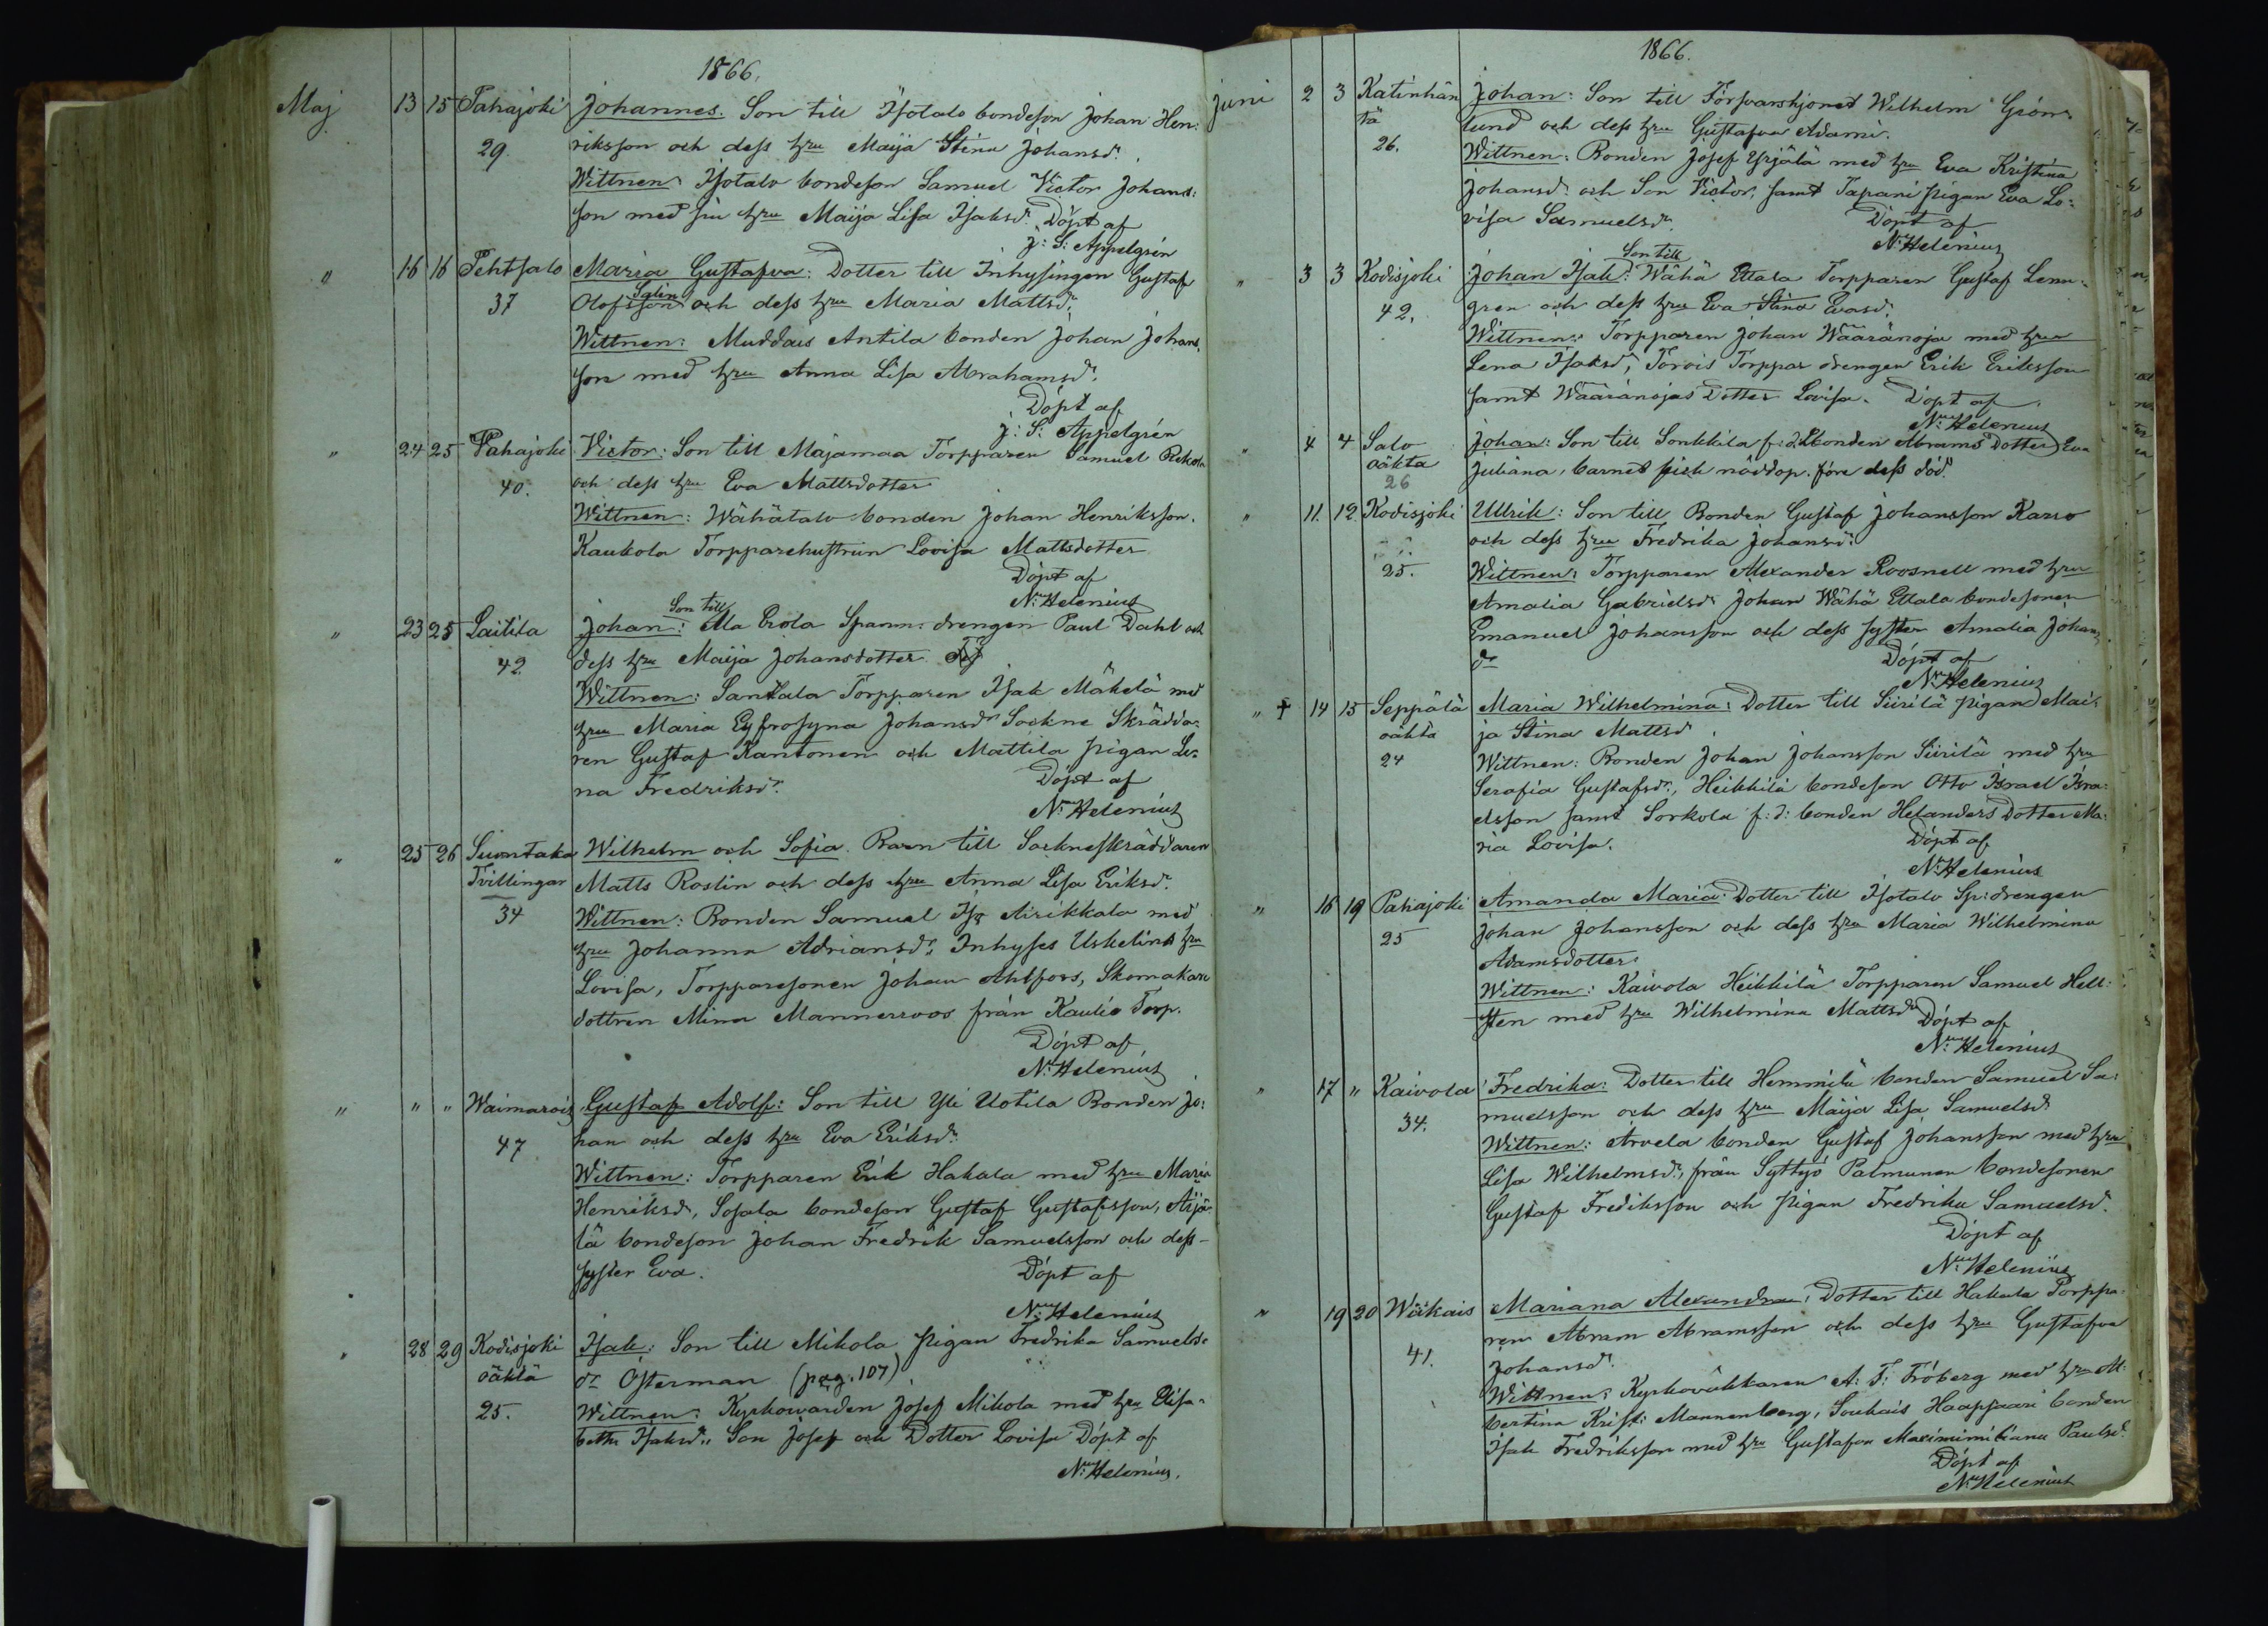 1866.
Maj 13 15 Pahajoki Johannes. Son till Isotalo bondeson Johan Hen:
29. riksson och dess hru Maija Stina Johansdr.
Wittnen: Isotalo bondeson Samuel Victor Johans:
son med sin hru Maija Lisa Isaksdr. Döpt af
J: S: Appelgrén
" 16 16 Pehtsalo Maria Gustafva: Dotter till Inhysingen Gustaf
Salin
37 Olofsson och dess hru Maria Mattsdr.
Wittnen: Muddais Antila bonden Johan Johans,
son med hru Anna Lisa Abrahamsdr.
Döpt af
J: S: Appelgrén
" 24 25 Pahajoki Victor: Son till Majamaa Torpparen Samuel Rekola
40. och dess hru Eva Mattsdotter
Wittnen: Wähätalo bonden Johan Henriksson.
Kaukola Torpparehustrun Lovisa Mattsdotter
Döpt af
N: Helenius
Son till
" 23 25 Laitila Johan: Ala Erola Spanm: drengen Paul Dahl och
42. dess hru Maija Johansdotter
Wittnen: Santala Torpparen Isak Mäkelä med
hru Maria Eufrosyna Johansdr Sockne Skrädda:
ren Gustaf Kantonen och Mattila pigan Le:
na Fredriksdr. Döpt af
N: Helenius
" 25 26 Suontaka Wilhelm och Sofia. Barn till Sockneskräddaren
Tvillingar Matts Roslin och dess hru Anna Lisa Eriksdr.
34 Wittnen: Bonden Samuel Airikkala med
hru Johanna Adriansdr. Inhyses Uskelins hru
Lovisa, Torpparesonen Johan Ahlfors, Skomakare
dottren Mina Mannerroos från Kaulio Torp.
Döpt af
N: Helenius
" " " Waimarois Gustaf Adolf: Son till Yli Uotila Bonden Jo:
47 han och dess hru Eva Eriksdr.
Wittnen: Torpparen Erik Hakala med hru Maria
Henriksdr, Sosala bondeson Gustaf Gustafsson, Äijä:
lä bondeson Johan Fredrik Samuelsson och dess
syster Eva. Döpt af
N: Helenius
" 28 29 Kodisjoki Isak: Son till Mikola pigan Fredrika Samuels:
oäkta dr Österman (pag. 107)
25. Wittnen: Kyrkowärden Josef Mikola med hru Elisa:
beth Isaksdr. Son Josef och Dotter Lovisa Döpt af
N: Helenius.
1866.
Juni 2 3 Katinhän Johan: Son till Försvarshjonet Wilhelm Grön:
tä lund och dess hru Gustafva Adami.
26. Wittnen: Bonden Josef Yrjälä med hru Eva Kristina
Johansdr. och Son Victor, samt Tapani pigan Eva Lo:
visa Samuelsdr. Döpt af
N: Helenius
Son till
" 3 3 Kodisjoki Johan Isak: Wähä Ettala Torpparen Gustaf Lenn:
42. gren och dess hru Eva Stina Evasdr.
Wittnen: Torpparen Johan Wääränoja med hru
Lena Isaksdr, Torois Torppar drengen Erik Eriksson
samt Wääränojas Dotter Lovisa. Döpt af
N: Helenius
" 4 4 Salo Johan: Son till Sonkkila f: d: bonden Abrams Dotter Eva
oäkta Juliana, barnet fick nöddop. före dess död.
26
" 11. 12. Kodisjoki Ullrik: Son till Bonden Gustaf Johansson Karso
och dess hru Fredrika Johansdr.
25. Wittnen: Torpparen Alexander Roosnell med hru
Amalia Gabrielsdr Johan Wähä Ettala bondesonen
Emanuel Johansson och dess syster Amalia Johans
dr Döpt af
N: Helenius
" † 14 15 Seppälä Maria Wilhelmina: Dotter till Siirilä pigan Mai:
oäkta ja Stina Mattsd
24 Wittnen: Bonden Johan Johansson Siirilä med hru
Serafia Gustafsdr, Heikkilä bondeson Otto Israel Isra:
elsson samt Sorkola f: d: bonden Helanders Dotter Ma:
ria Lovisa. Döpt af
N: Helenius
" 16 19 Pahajoki Amanda Maria: Dotter till Isotalo Sp: drengen
25 Johan Johansson och dess hru Maria Wilhelmina
Adamsdotter
Wittnen: Kaivola Heikkilä Torpparen Samuel Hell:
sten med hru Wilhelmina Mattsdr Döpt af
N: Helenius
" 17 " Kaivola Fredrika: Dotter till Hemmilä bonden Samuel Sa:
34. muelsson och dess hru Maija Lisa Samuelsdr
Wittnen: Arvela bonden Gustaf Johansson med hru
Lisa Wilhelmsdr, från Syttyö Palmunen bondesonen
Gustaf Frediksson och pigan Fredrika Samuelsdr.
Döpt af
N: Helenius
" 19 20 Wäkais Mariana Alexandra: Dotter till Hakala Torppa:
41. ren Abram Abramsson och dess hru Gustafva
Johansdr.
Wittnen: Kyrkoväktaren A: F: Fröberg med hru Al:
bertina Krist: Mannenberg, Souhais Haapsaari bonden
Isak Fredriksson med hru Gustafva Maximimiliana Paulsdr.
Döpt af
N: Helenius